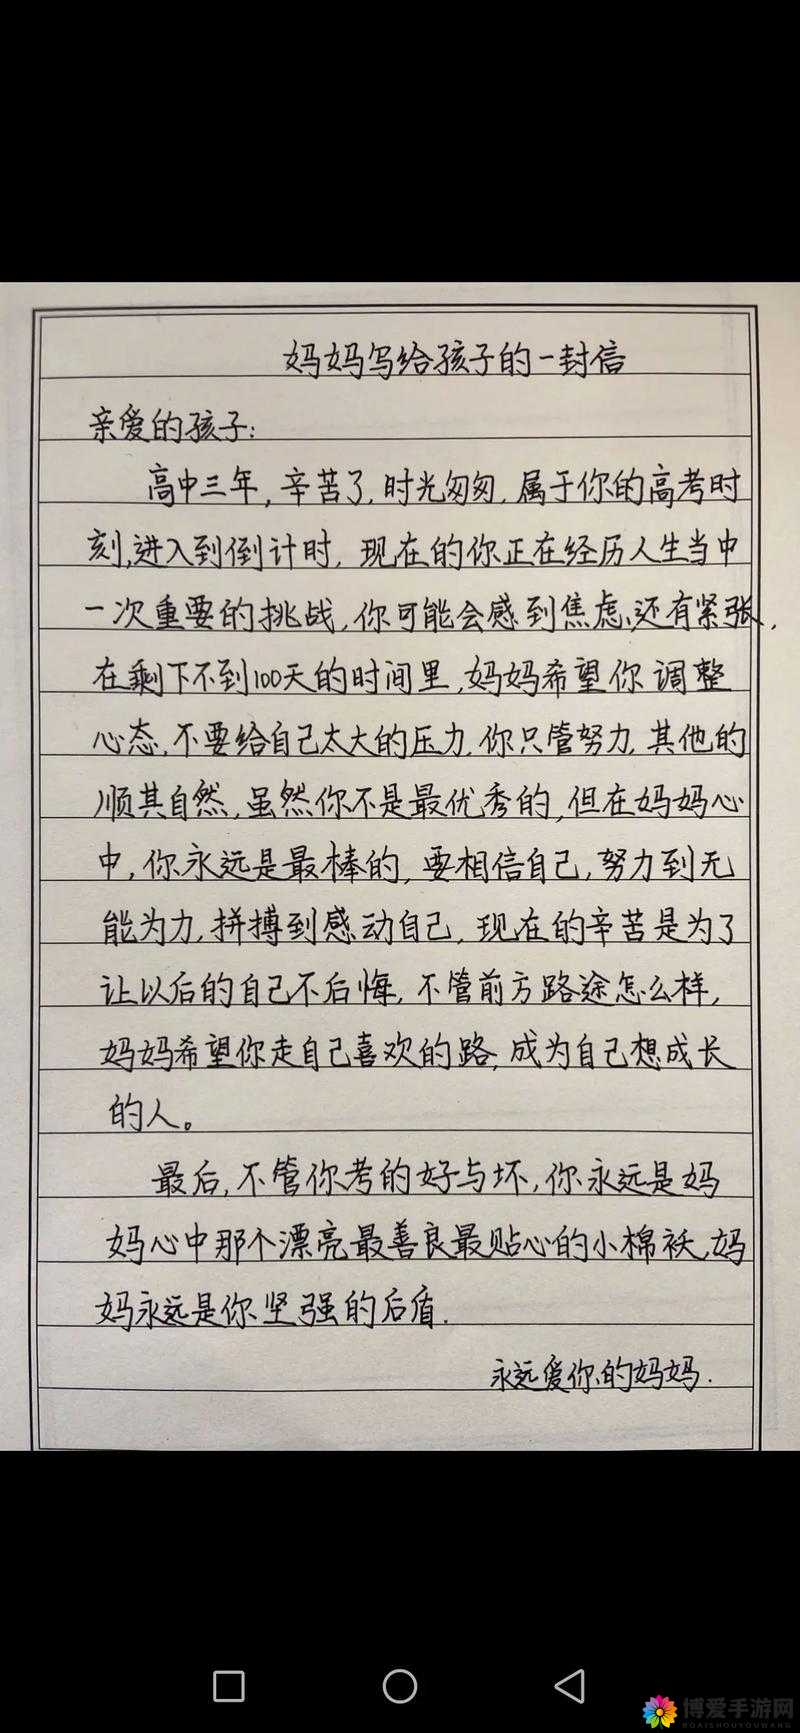 妈妈写给孩子的一封信
亲爱的孩子:
高中三年,辛苦了,时光匆匆,属于你的高考时
刻,进入到倒计时,现在的你正在经历人生当中
一次重要的挑战,你可能会感到焦虑,还有紧张,
在剩下不到100天的时间里,妈妈希望你调整
心态,不要给自己太大的压力,你只管努力,其他的
顺其自然,虽然你不是最优秀的,但在妈妈心
中,你永远是最棒的,要相信自己,努力到无
能为力,拼搏到感动自己,现在的辛苦是为了
让以后的自己不后悔,不管前方路途怎么样,
妈妈希望你走自己喜欢的路,成为自己想成长
的人。
最后,不管你考的好与坏,你永远是妈
妈心中那个漂亮最善良最贴心的小棉袄,妈
妈永远是你坚强的后盾.
永远爱你的妈妈.
博爱手游网
BOAISHOUYOUWANG